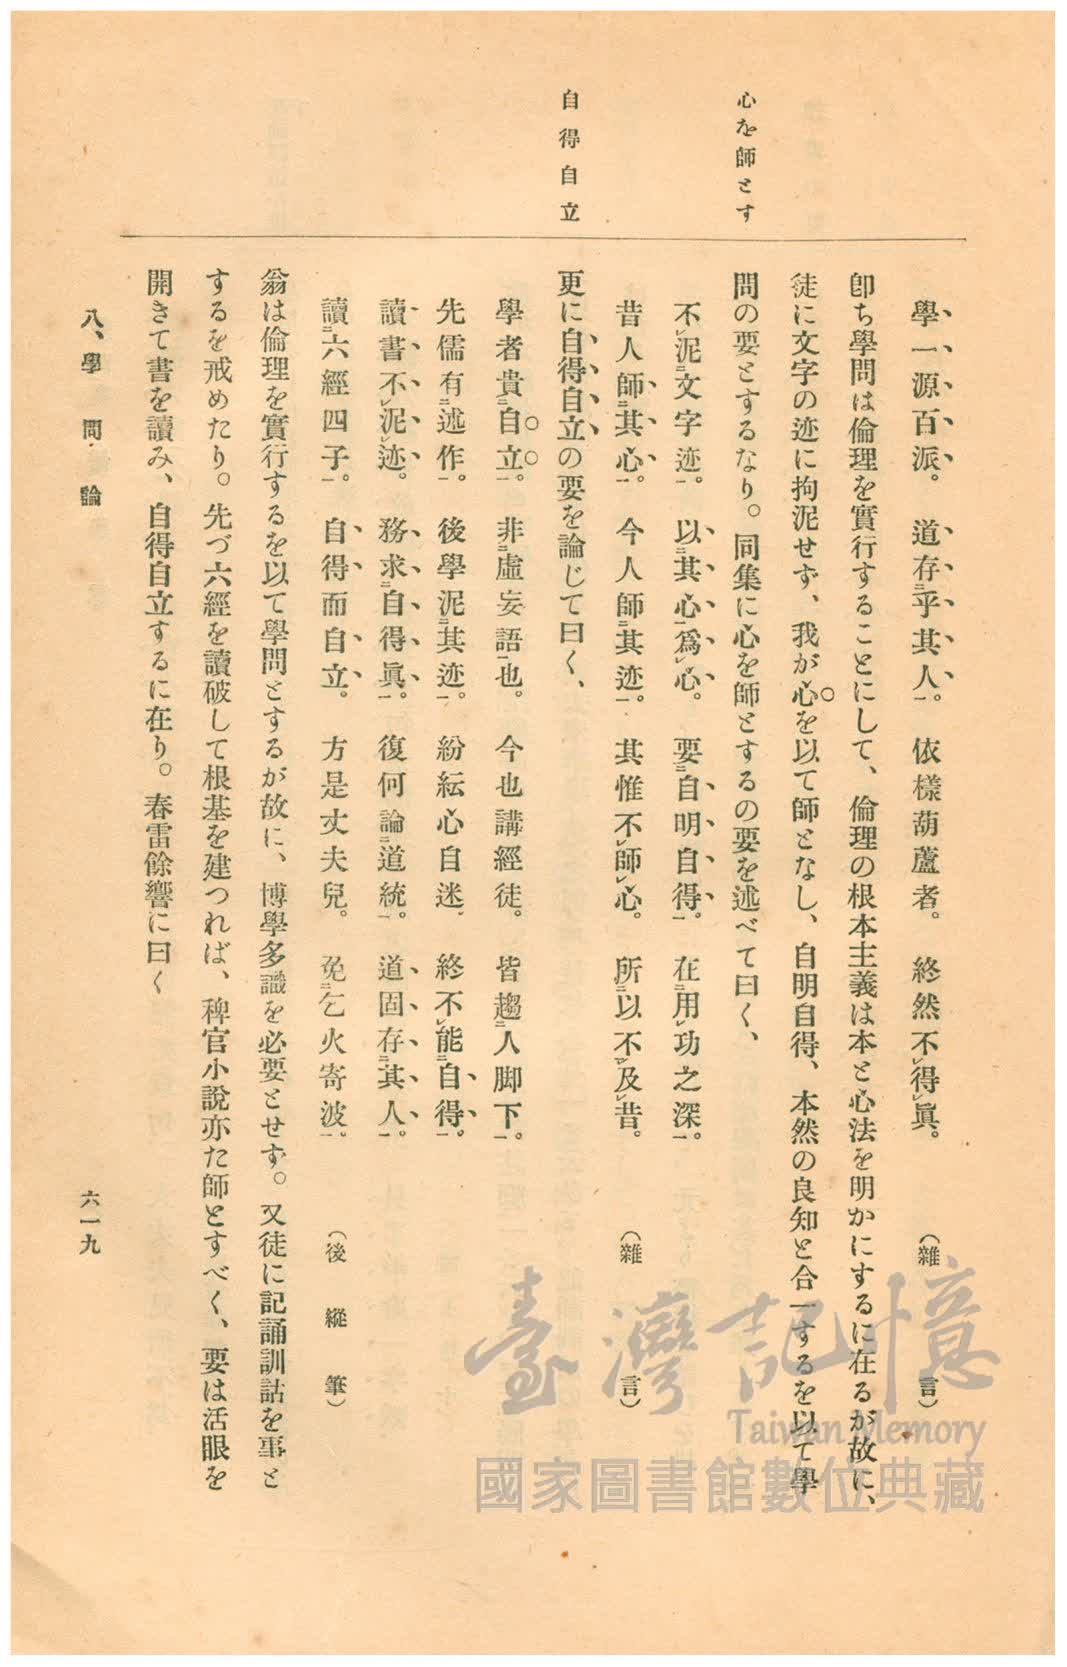 心を師とす
自得自立
學一源百派。道存二乎其人一。依樣葫蘆者。終然不レ得レ眞。（雜言）
卽ち學問は倫理を實行することにして、倫理の根本主義は本と心法を明かにするに在るが故に、
徒に文字の迹に拘泥せず、我が心を以て師となし、自明自得、本然の良知と合一するを以て學
問の要とするなり。同集に心を師とするの要を述べて曰く、
不レ泥二文字迹一。以二其心一爲レ心。要二自明自得一。在二用レ功之深一。
昔人師二其心一。今人師二其迹一。其惟不レ師レ心。所二以不一レ及レ昔。（雜言）
更に自得自立の要を論じて曰く、
學者貴二自立一。非二虛妄語一也。今也講經徒。皆趨二人脚下一。
先儒有二述作一。後學泥二其迹一。紛紜心自迷。終不レ能二自得一。
讀書不レ泥レ迹。務求二自得眞一。復何論二道統一。道固存二其人一。
讀二六經四子一。自得而自立。方是丈夫兒。免二乞火寄波一。（後縱筆）
翁は倫理を實行するを以て學問とするが故に、博學多識を必要とせず。又徒に記誦訓詁を事と
するを戒めたり。先づ六經を讀破して根基を建つれば、稗官小說亦た師とすべく、要は活眼を
開きて書を讀み、自得自立するに在り。春雷餘響に曰く
八、學問論
六一九
臺灣記憶
Taiwan Memory
國家圖書館數位典藏